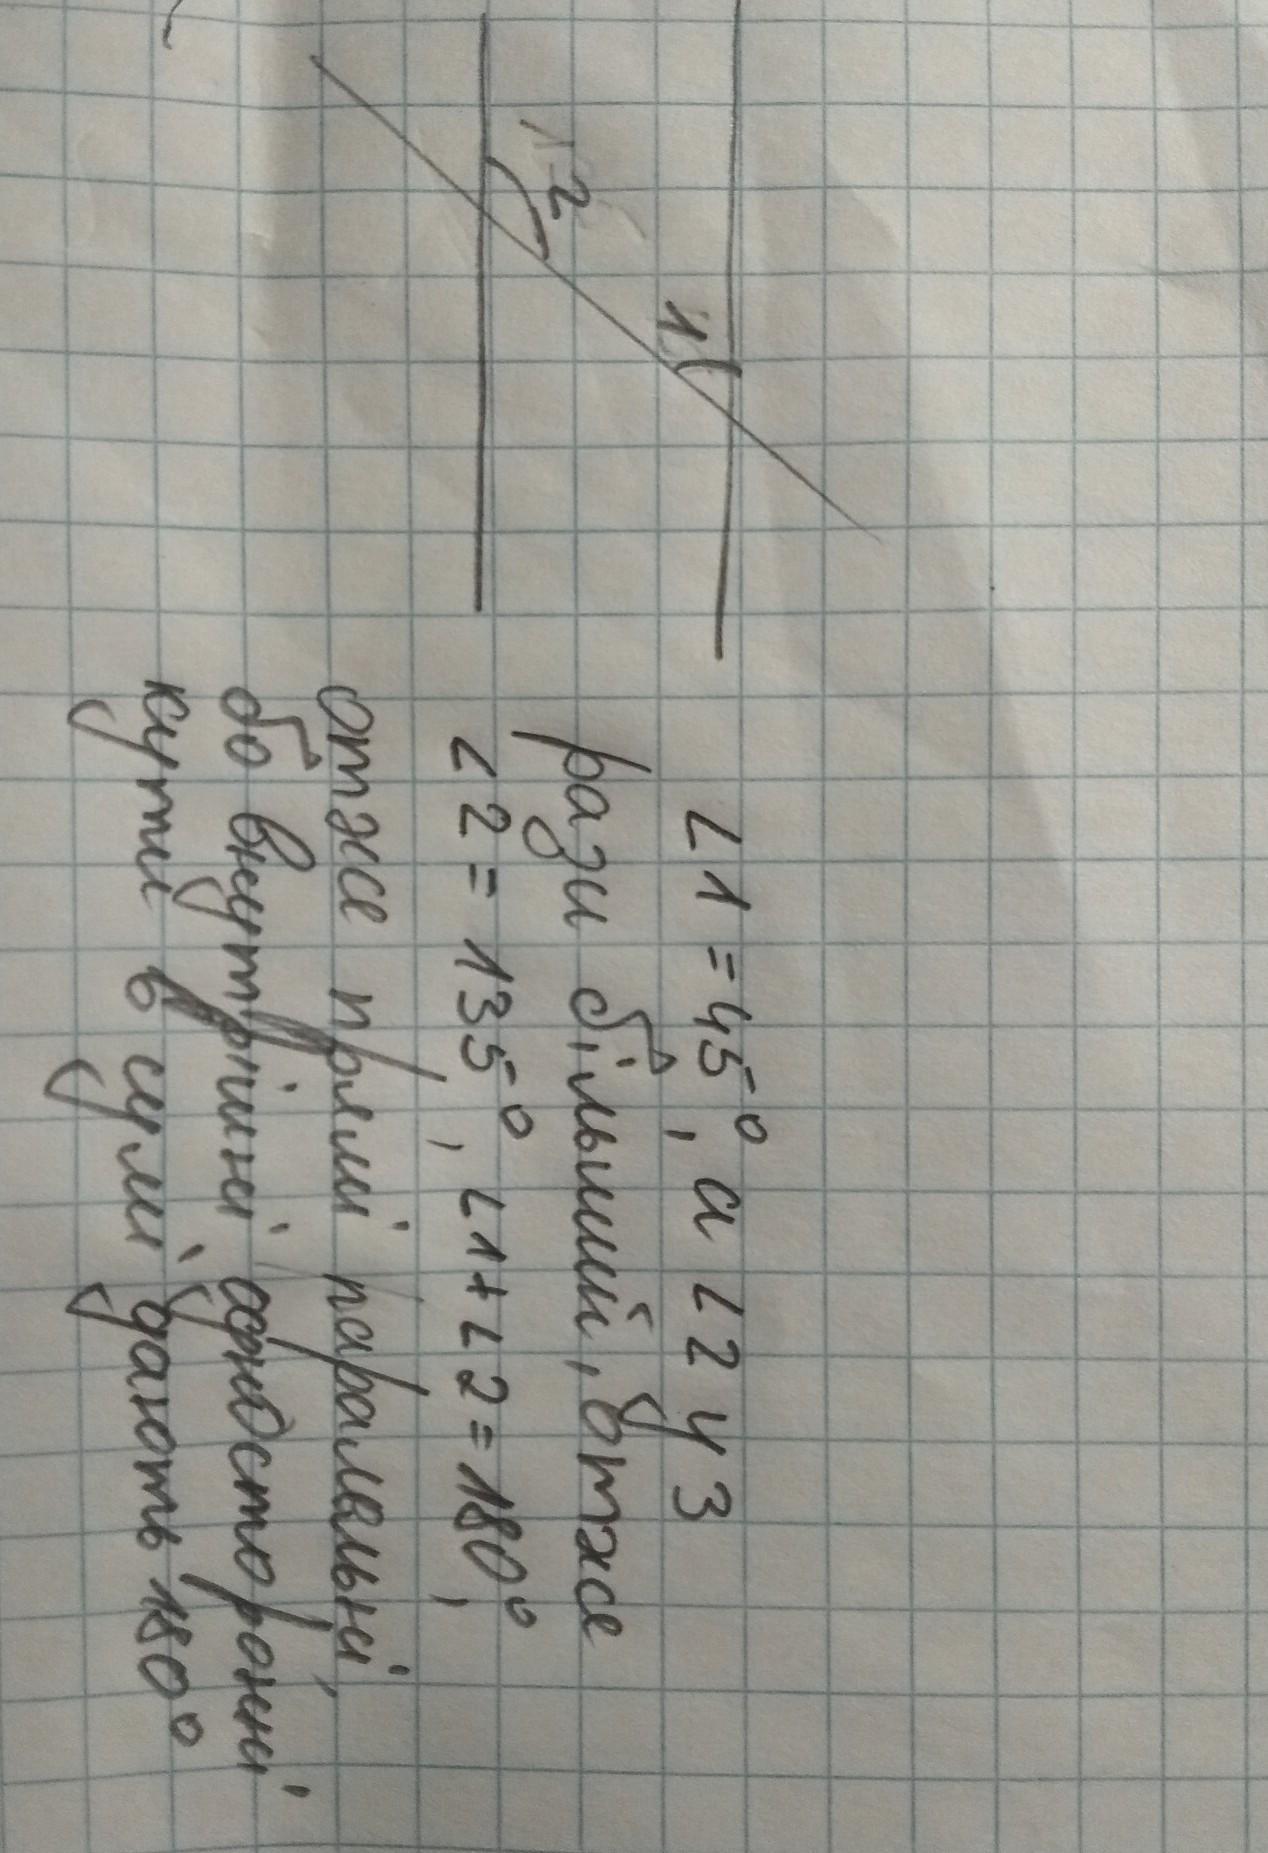 2
1
∠1 = 45°, а ∠2 у 3
рази більший, отже
∠2 = 135°, ∠1+∠2=180°,
отже прямі паралельні,
бо внутрішні односторонні
кути в сумі дають 180°